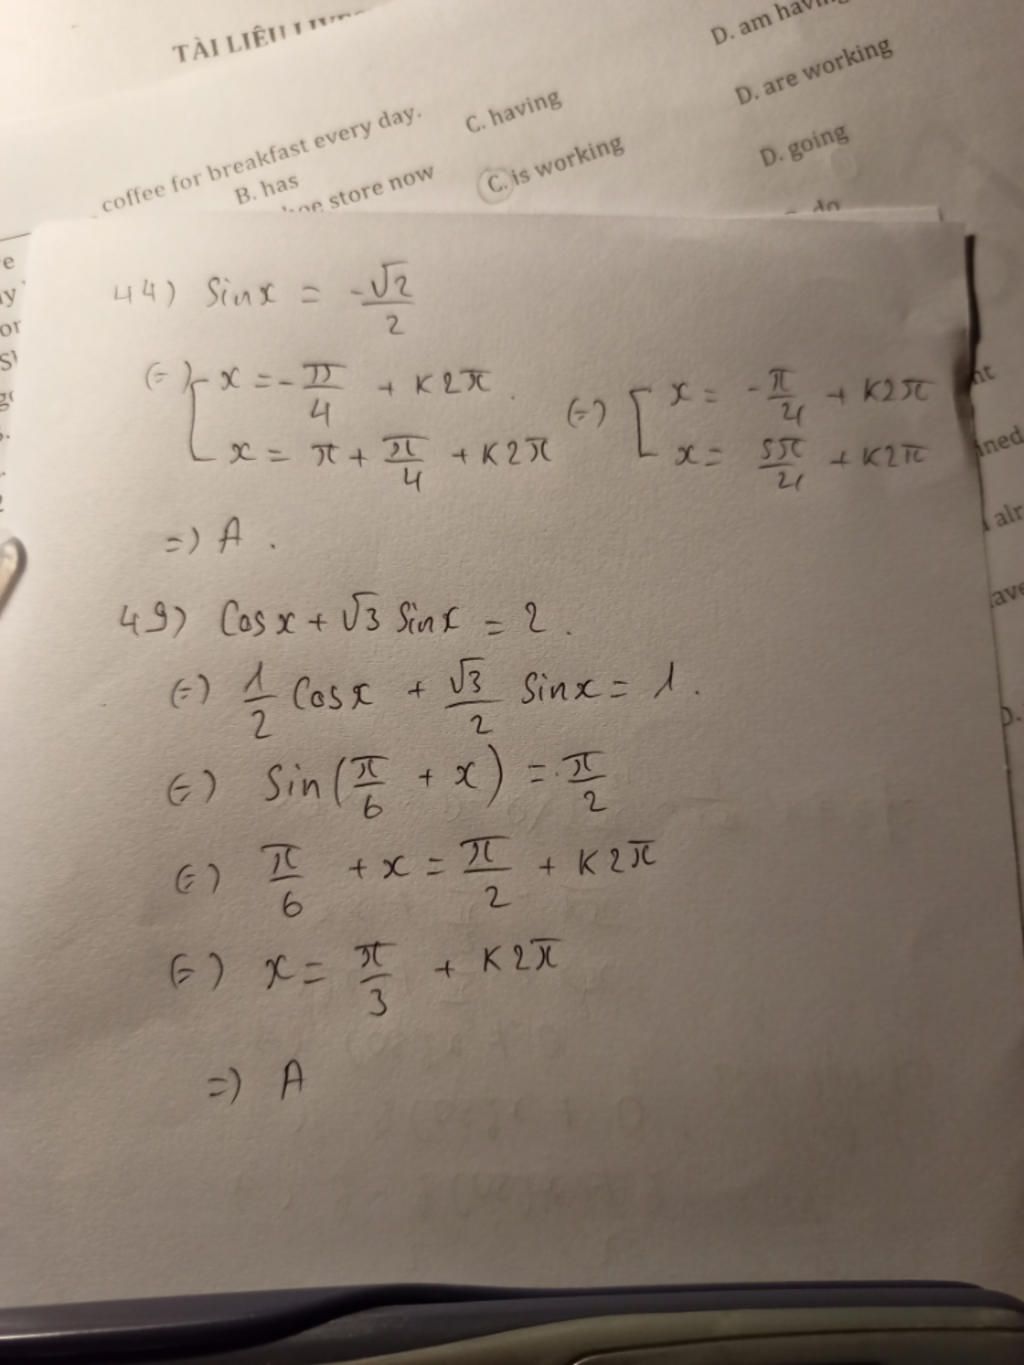 TÀI LIỆU
D. am having
coffee for breakfast every day.
C. having
D. are working
B. has
store now
C. is working
D. going
do
44) Sinx = -√2/2
(=) [ x = -π/4 + K2π . (=) [ x = -π/4 + K2π
x = π + π/4 + K2π x = 5π/4 + K2π
=) A .
49) Cosx + √3 Sinx = 2 .
(=) 1/2 Cosx + √3/2 Sinx = 1 .
(=) Sin(π/6 + x) = π/2
(=) π/6 + x = π/2 + K2π
(=) x = π/3 + K2π
=) A